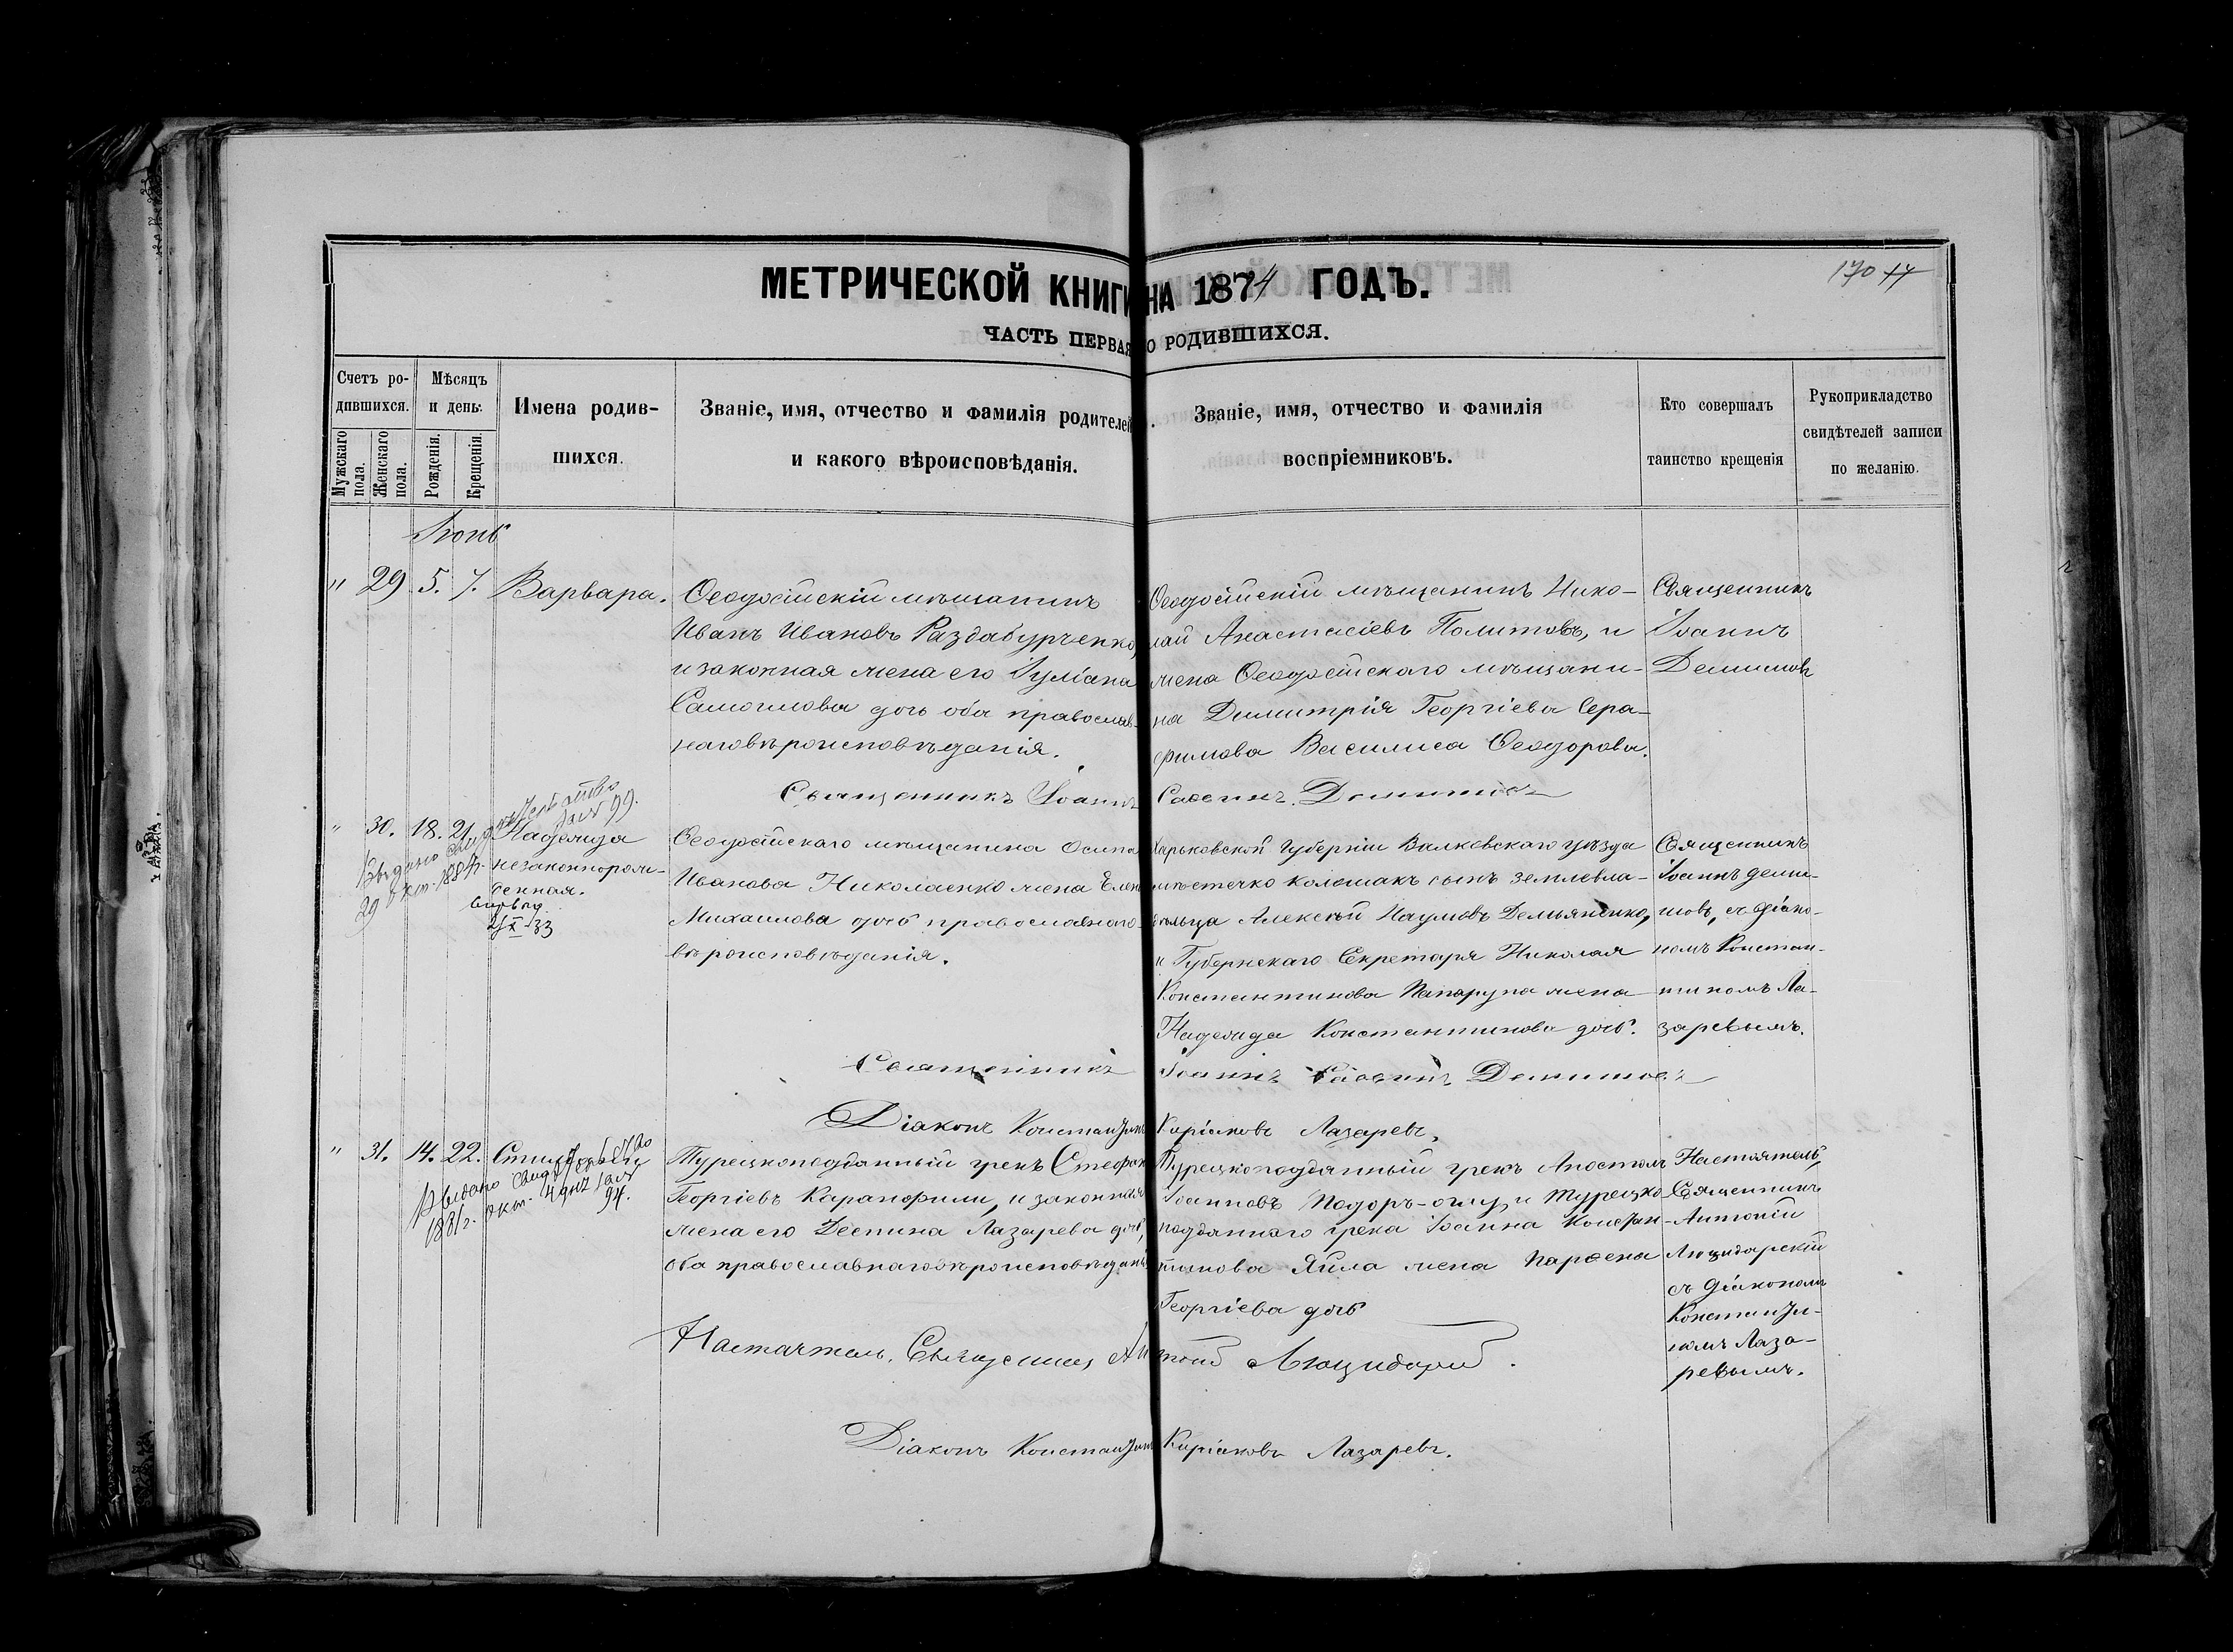 МЕТРИЧЕСКОЙ КНИГИ НА 1874 ГОДЪ.
170 17
ЧАСТЬ ПЕРВАЯ О РОДИВШИХСЯ.
Счетъ ро-
дившихся.
Мужскаго пола.
Женскаго пола.
Мѣсяцъ
и день.
Рожденія.
Крещенія.
Имена родив-
шихся.
Званіе, имя, отчество и фамилія родителей
и какого вѣроисповѣданія.
Званіе, имя, отчество и фамилія
воспріемниковъ.
Кто совершалъ
таинство крещенія
Рукоприкладство
свидѣтелей записи
по желанію.
Іюнь
" 29 5. 7. Варвара.
Ѳеодосійскій мѣщанинъ
Иванъ Ивановъ Раздабурченко,
и законная жена его Іуліана
Самоилова дочь оба православ-
наго вѣроисповѣданія.
Ѳеодосійскій мѣщанинъ Нико-
лай Анастасіевъ Политовъ, и
жена Ѳеодосійскаго мѣщани-
на Димитрія Георгіева Сера-
фимова Василиса Ѳеодорова.
Священникъ
Іоаннъ
Демишовъ
Священникъ Іоаннъ Саввинъ Демишовъ
" 30. 18. 21. Надежда
незаконнорож-
денная.
Выдано
29 окт. 1884 г.
99.
Ѳеодосійскаго мѣщанина Осипа
Иванова Николаенко жена Елена
Михаилова дочь православнаго
вѣроисповѣданія.
Харьковской Губерніи Валковскаго уѣзда
мѣстечко Коломакъ сынъ землевла-
дѣльца Алексѣй Наумовъ Демьяненко,
и Губернскаго Секретаря Николая
Константинова жена
Надежда Константинова дочь.
Священникъ
Іоаннъ Деми-
шовъ, съ діако-
номъ Констан-
тиномъ Ла-
заревымъ.
Священникъ Іоаннъ Саввинъ Демишовъ
Діаконъ Константинъ Киріаковъ Лазаревъ.
" 31. 14. 22.
Выдано свидѣтельство
1881 г. окт. 4 дня за №
94.
Турецкоподданный грекъ Стефанъ
Георгіевъ Карапофили, и законная
жена его Деспина Лазарева дочь,
оба православнаго вѣроисповѣданія
Турецкоподданный грекъ Апостолъ
Іоанновъ Подоръ-оглу, и Турецко-
подданнаго грека Іоанна Констан-
тинова Яйла жена Парѳена
Георгіева дочь
Настоятель,
Священникъ
Антоній
Люцидарскій
съ Діакономъ
Константи-
номъ Лаза-
ревымъ.
Настоятель, Священникъ Антоній Люцидарскій.
Діаконъ Константинъ Киріаковъ Лазаревъ.